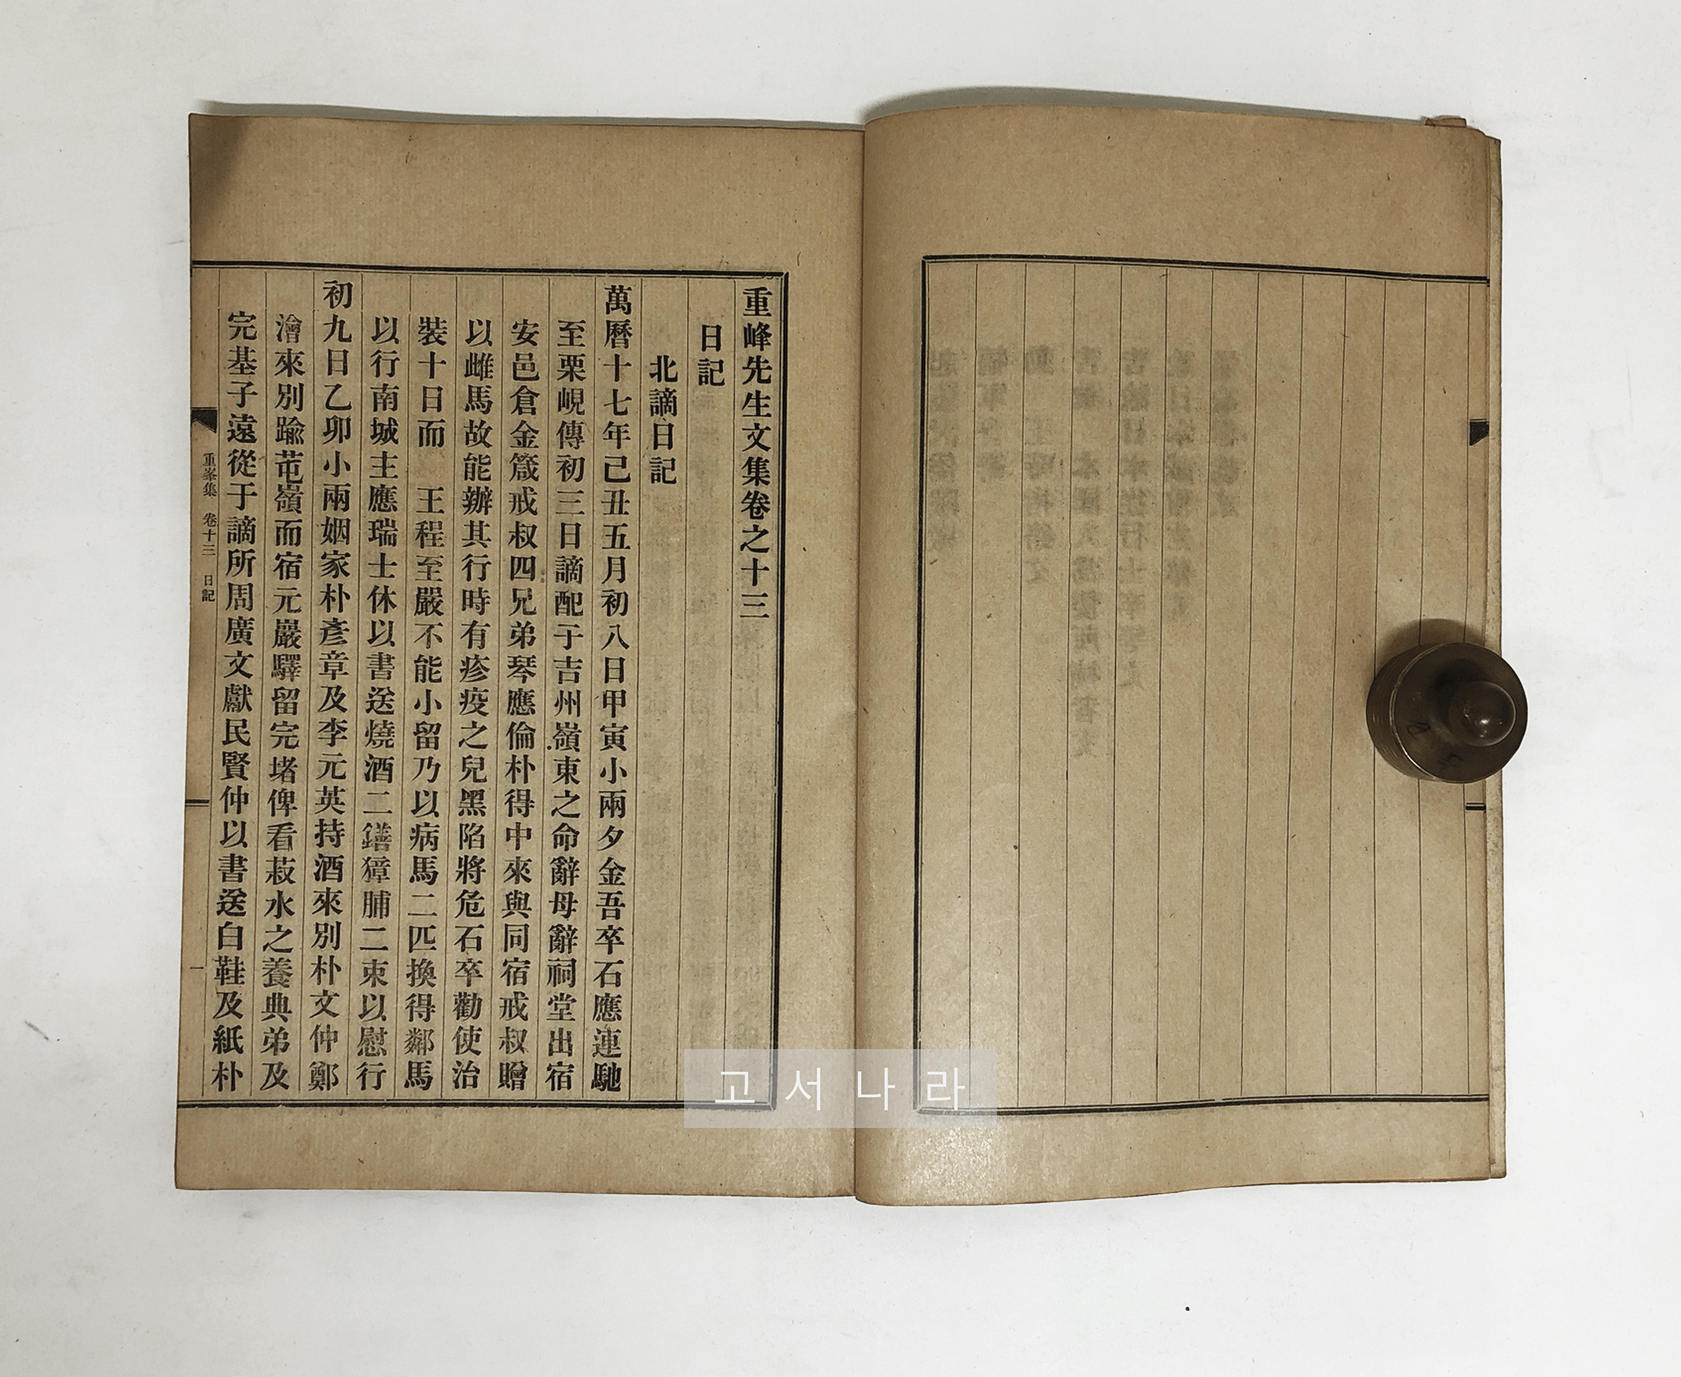 重峰先生文集卷之十三
日記
北謫日記
萬曆十七年己丑五月初八日甲寅小雨夕金吾卒石應連馳
至栗峴傳初三日謫配于吉州嶺東之命辭母辭祠堂出宿
安邑倉金箴戒叔四兄弟琴應倫朴得中來與同宿戒叔贈
以雌馬故能辦其行時有疹疫之兒黑陷將危石卒勸使治
裝十日而 王程至嚴不能小留乃以病馬二匹換得鄰馬
以行南城主應瑞士休以書送燒酒二鐥獐脯二束以慰行
初九日乙卯小雨姻家朴彥章及李元英持酒來別朴文仲鄭
澮來別踰芚嶺而宿元巖驛留完堵俾看菽水之養典弟及
完基子遠從于謫所周廣文獻民賢仲以書送白鞋及紙朴
重峯集 卷十三 日記 一
고서나라